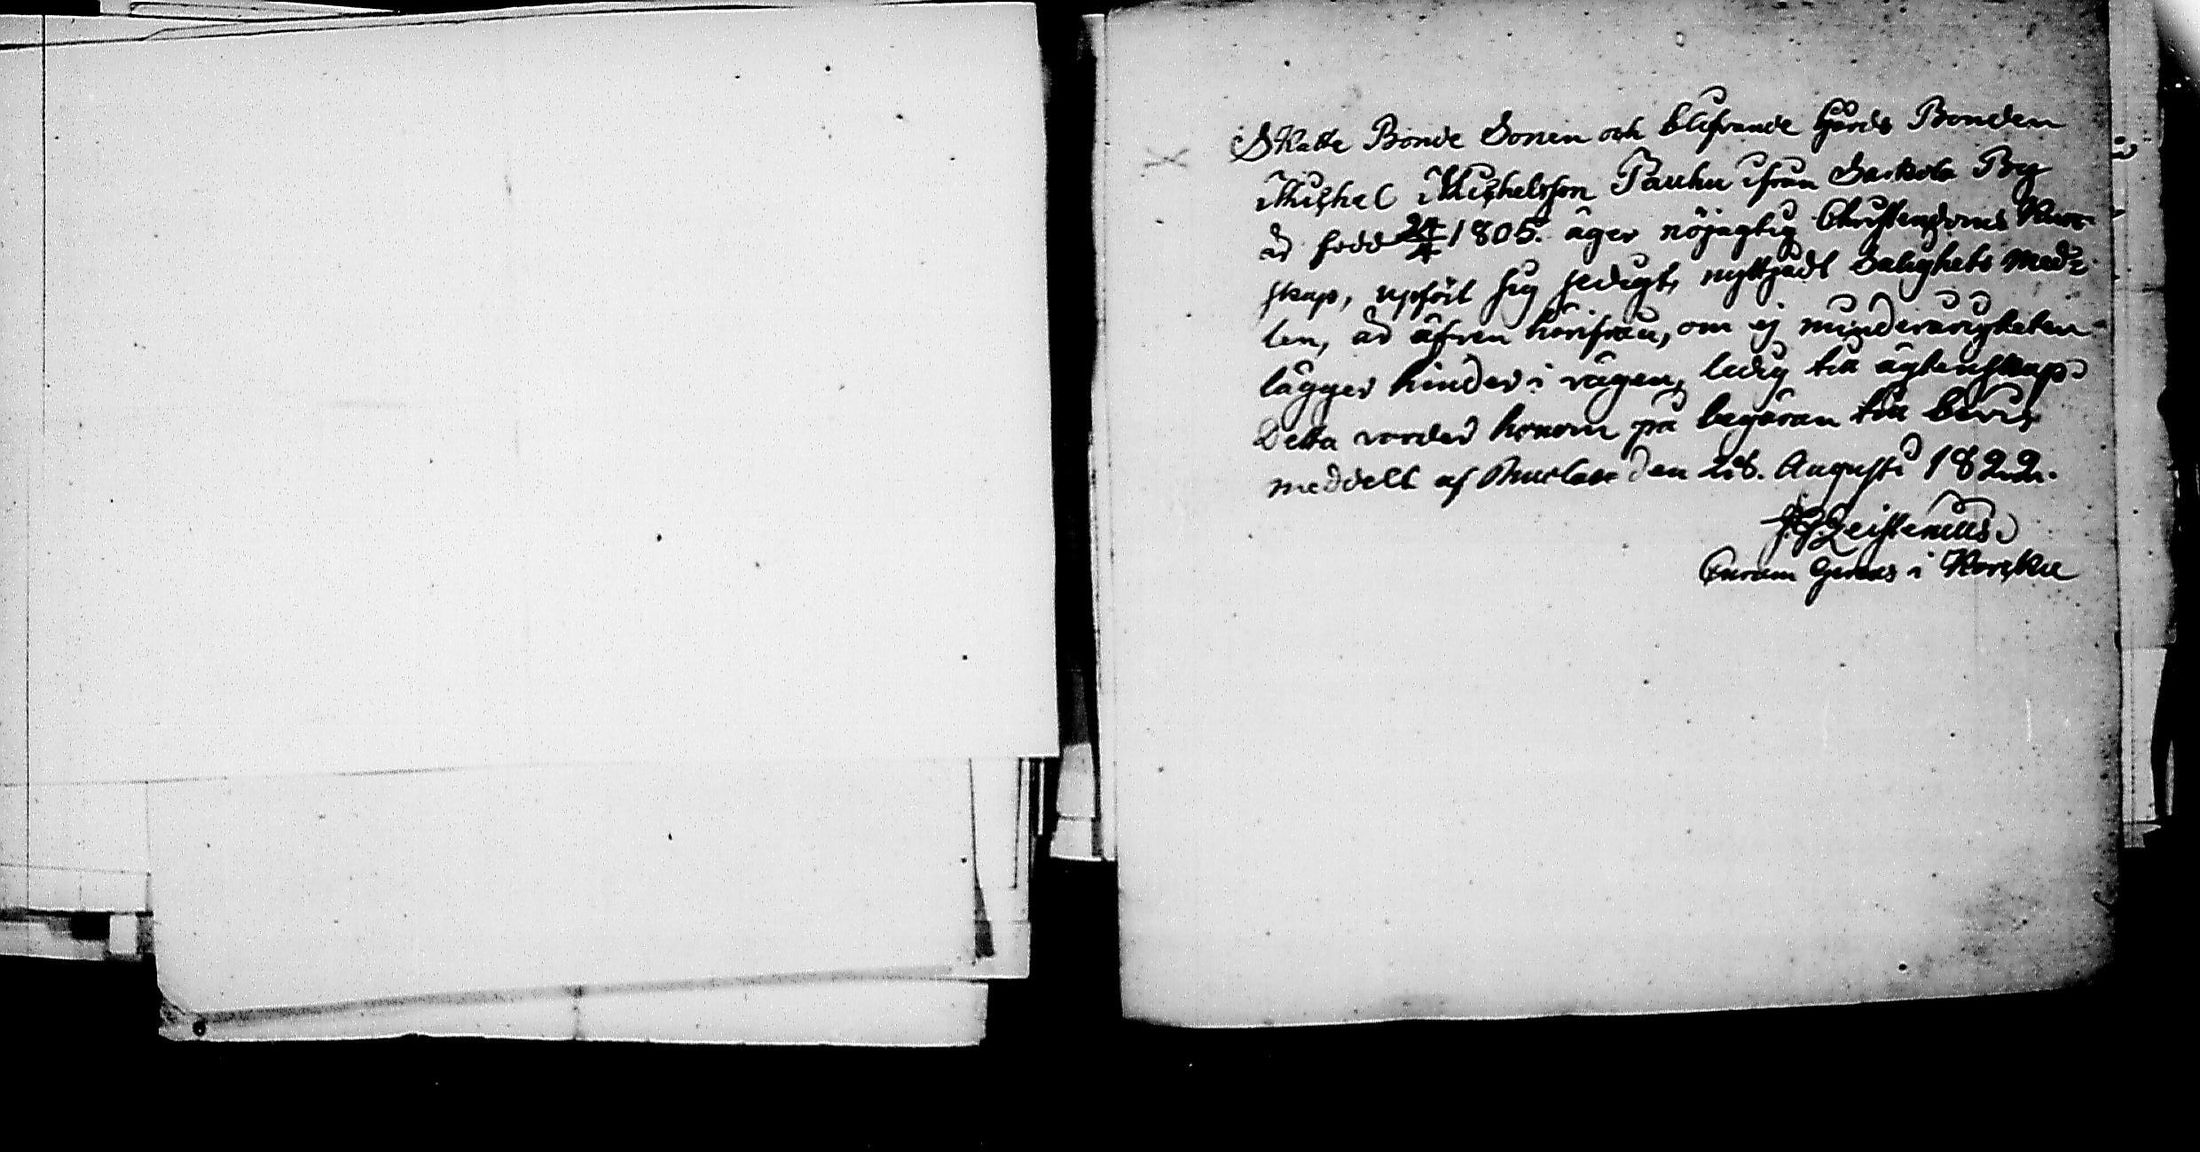 Skatte Bonde Sonen och blifvande Gårds Bonden
Michel Michelsson Pauhu ifrån Sarkola By
är född 24/4 1805. äger nöjagtig Christendoms Kun-
skap, upfört sig sedigt, nyttjadt Salighets Med-
len, är äfven härifrån, om ej minderårigheten
lägger hinder i vägen, ledig till ägtenskap.
Detta varder honom på begäran till bevis
meddelt af den 28. Augusti 1822.
Zeistenius.
Curam Gerens i